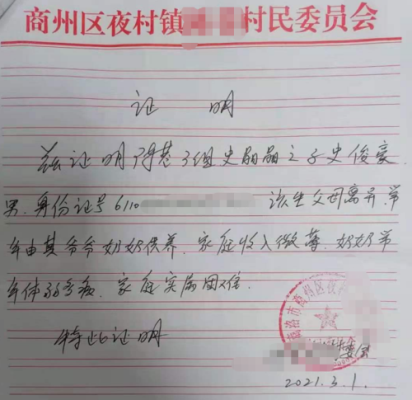 商州区夜村镇 村民委员会
证 明
兹证明 3组史晶晶之子史俊豪
男,身份证号6110 该生父母离异 常
年由其爷爷奶奶供养、家庭收入微薄、奶奶常
年体弱多病、家庭实属困难.
特此证明
2021.3.1.